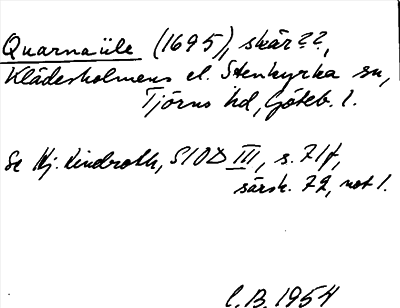 Quarnaüle (1695), skär??,
Klädesholmens el. Stenkyrka sn,
Tjörns hd, Göteb. l.
Se Hj. Lindroth, SIOD III, s. 71f,
särsk. 72, not 1.
C.B. 1954